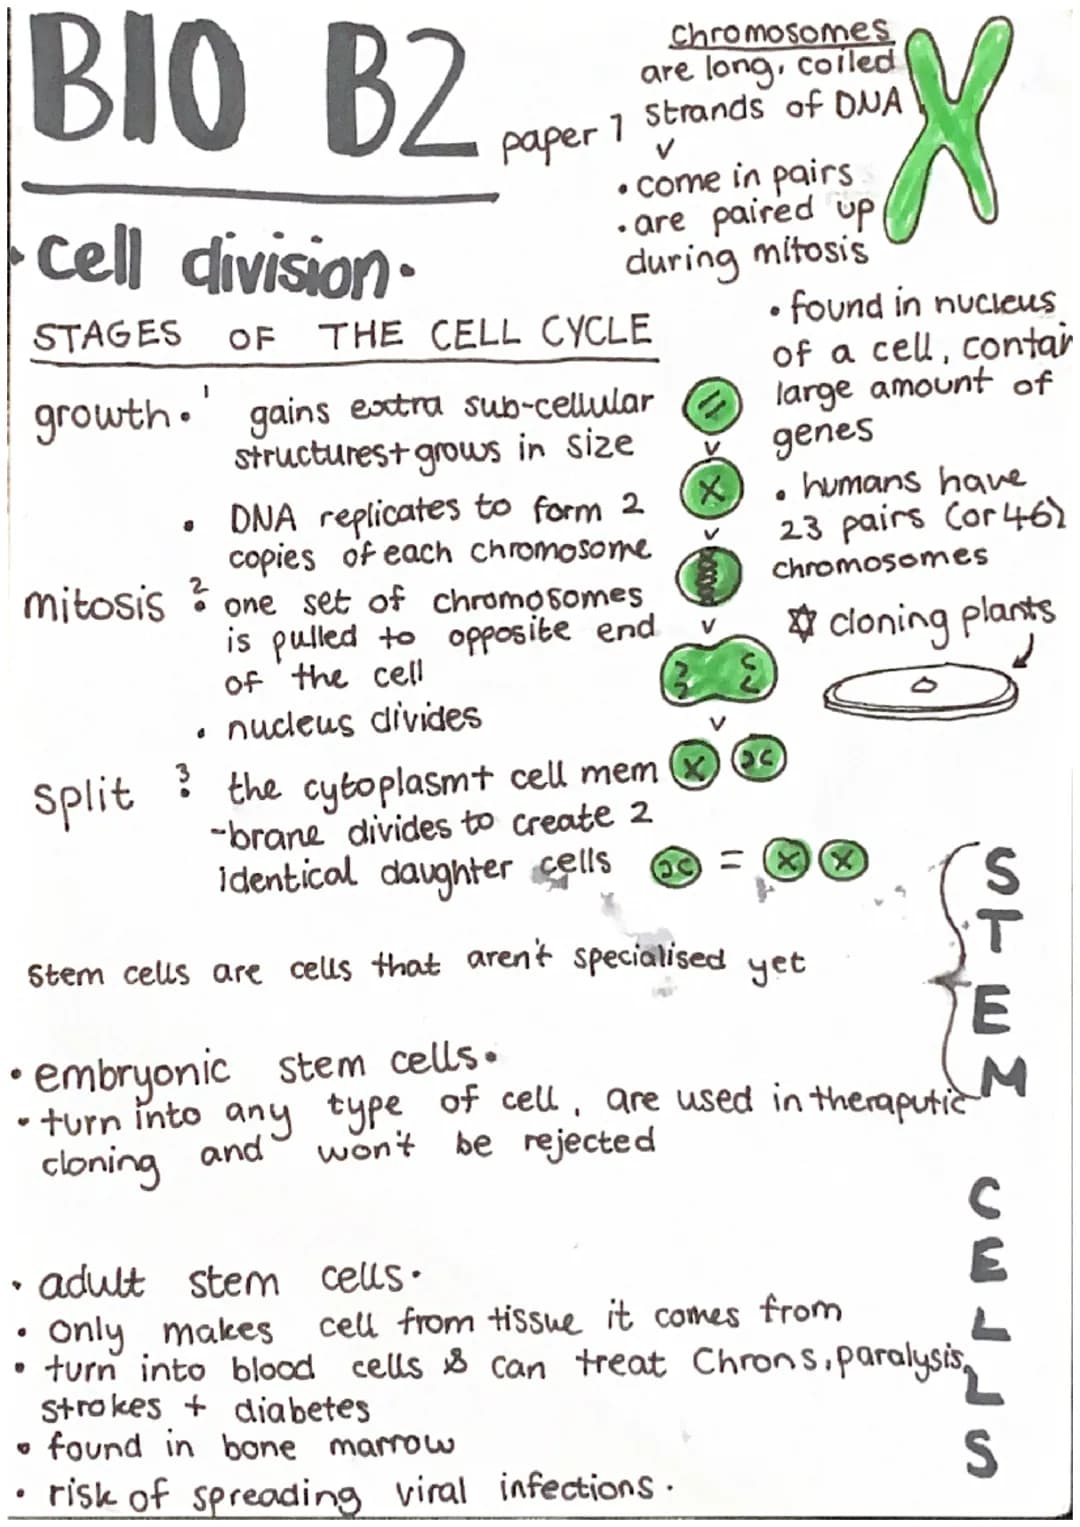 BIO B2
paper 1
chromosomes
are long, coiled
strands of DNA
• come in pairs
• are paired up
during mitosis
• found in nucleus
of a cell, contain
large amount of
genes
• humans have
23 pairs (or 46)
chromosomes
☆ cloning plants
• cell division •
STAGES OF THE CELL CYCLE
growth • 1 gains extra sub-cellular
structures + grows in size
• DNA replicates to form 2
copies of each chromosome
mitosis 2 • one set of chromosomes
is pulled to opposite end
of the cell
• nucleus divides
split 3 • the cytoplasm + cell mem
-brane divides to create 2
identical daughter cells
=
STEM
CELLS
stem cells are cells that aren't specialised yet
• embryonic stem cells •
• turn into any type of cell, are used in theraputic
cloning and won't be rejected
• adult stem cells •
• only makes cell from tissue it comes from
• turn into blood cells & can treat Chrons, paralysis,
strokes + diabetes
• found in bone marrow
• risk of spreading viral infections •